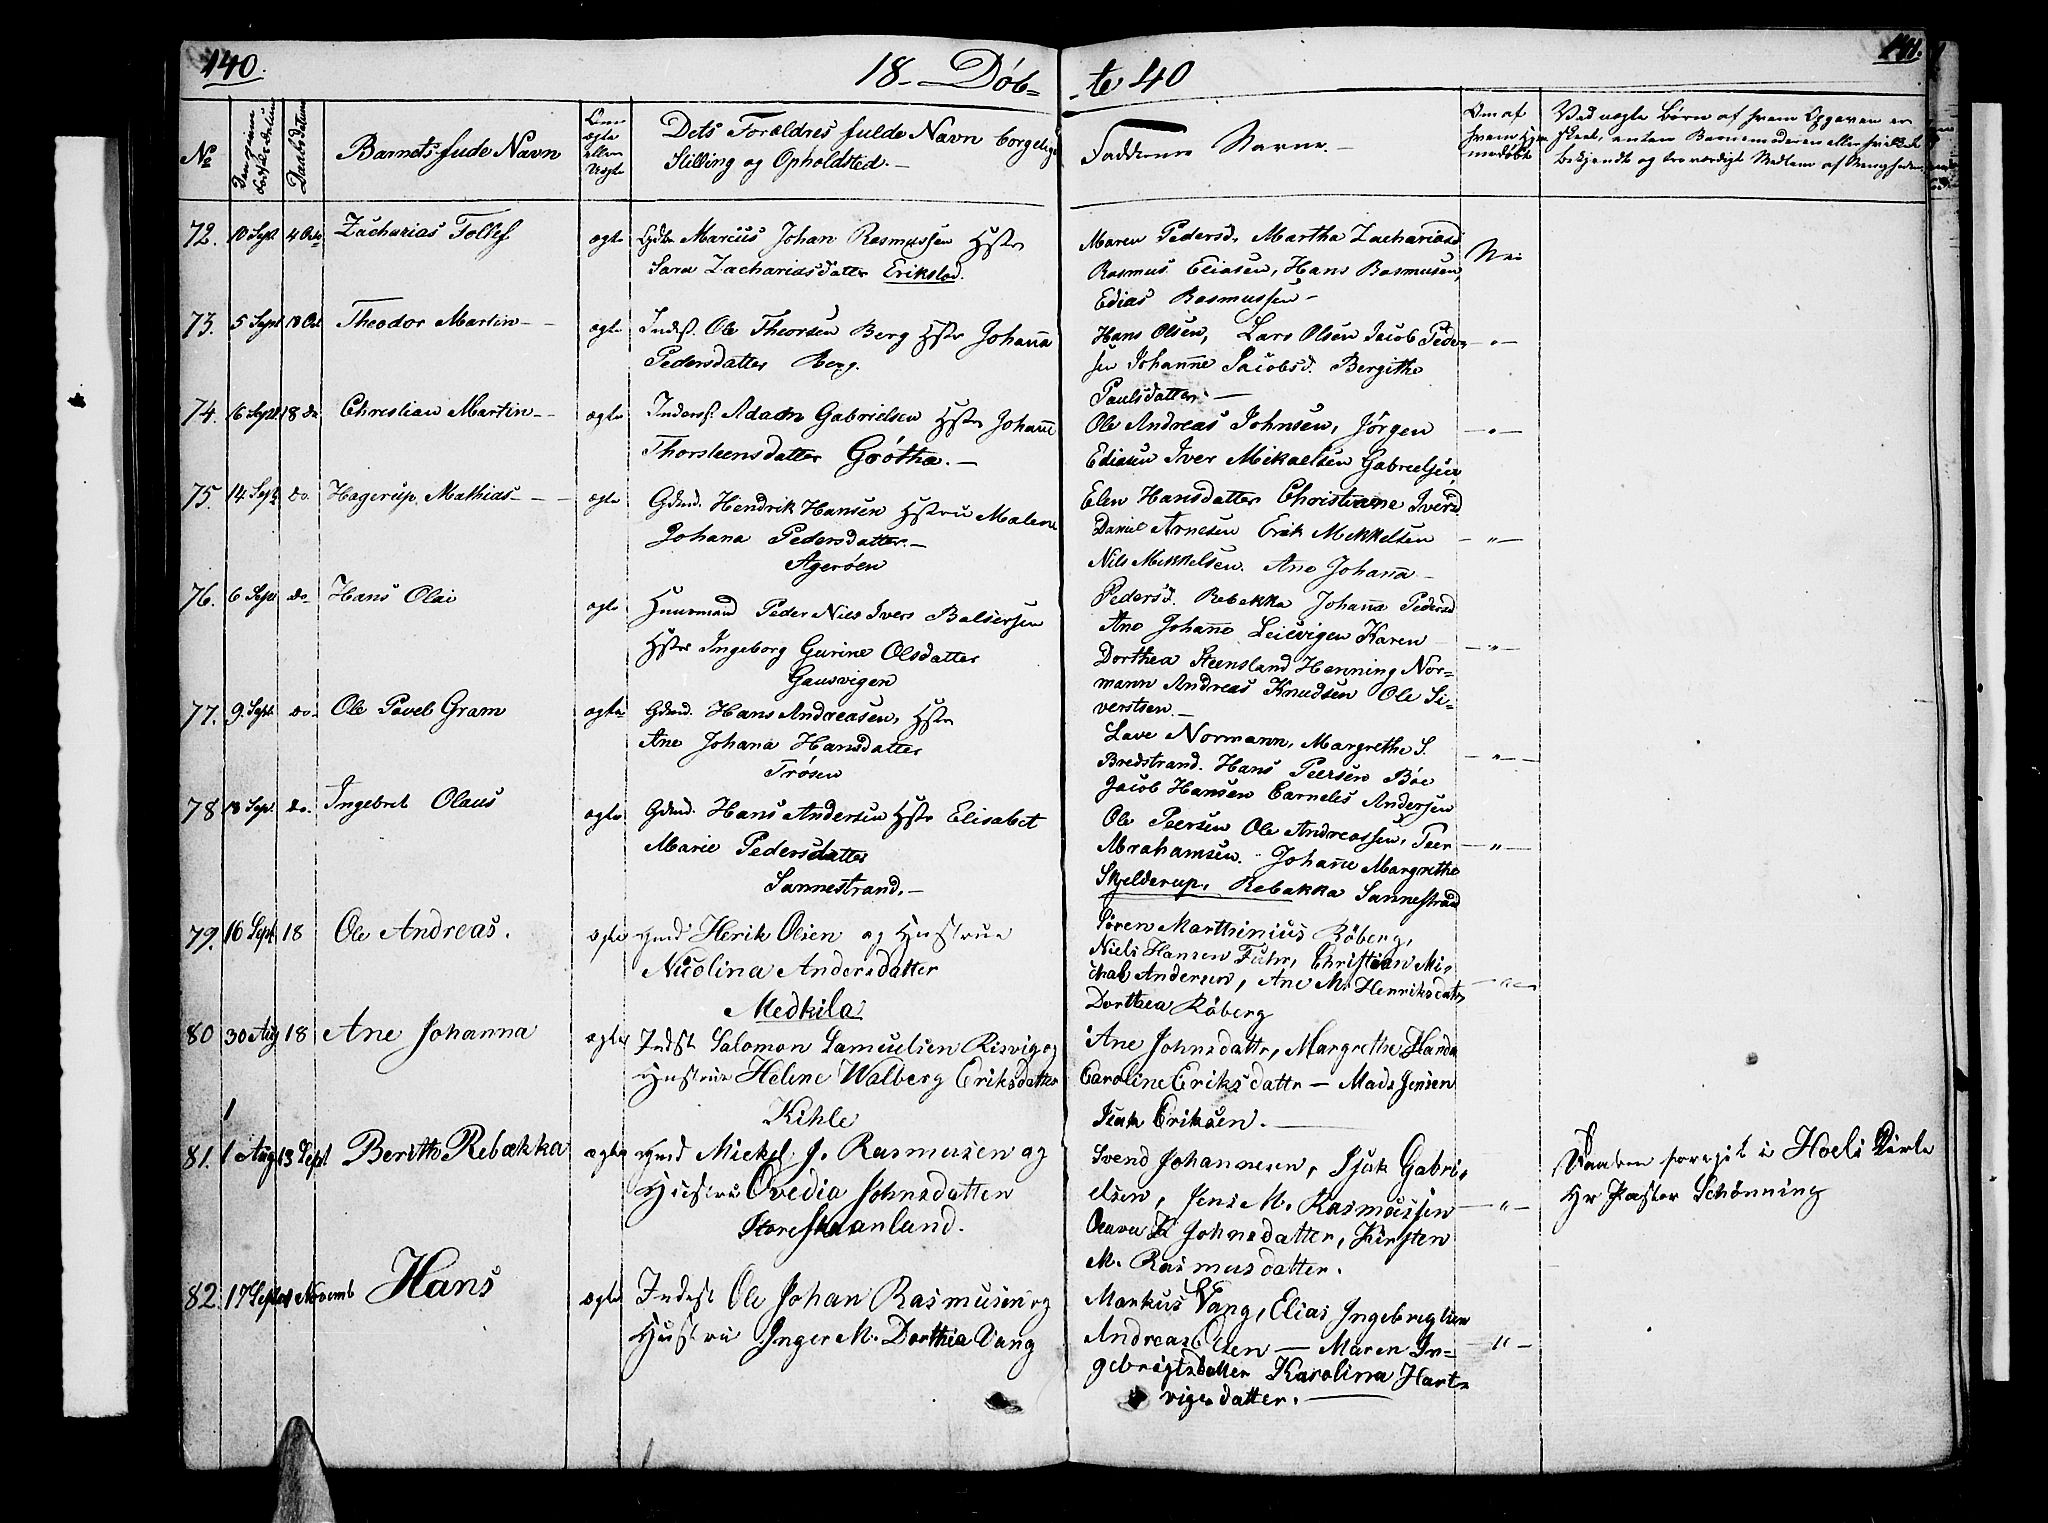 140.
18- Døb-
-te 40
141.
No
Barnets fude Navn
Dets Foræeldres fulde Navn borgelige
Stilling og Opholdsted. -
Faddernes Navne. -
72. 10 Sept 4 Octo Zacharias Tollef ægte Marcus Johan Rasmussen Hstr
Sara Zachariasdatter Erikstad.
Maren Pedersd, Martha Zachariasd
Rasmus Eliasen, Hans Rasmusen,
Edias Rasmussen - Nei
73. 5 Sept 18 Oct Theodor Martin - - ægte Inders. Ole Theorsen Berg Hstr Johana
Pedersdatter Berg.
Hans Olsen, Lars Olsen Jacob Peder
sen Johanne Jacobsd. Bergithe
Paulsdatter. - -"-
74. 16 Sept 18 do Christian Martin - - ægte Inders. Adam Gabrielsen Hstr Johane
Thorsteensdatter Grøtha. -
Ole Andreas Johnsen, Jørgen
Ediasen Iver Mikaelsen Gabrielsen, -"-
75. 14 Sept do. Hagerup Mathias - - ægte Gdmd. Hendrik Hansen Hstru Malene
Johana Pedersdatter. -
Agerøen
Elen Hansdatter Christiane Iversd
Daniel Arnesen Erik Mekkelsen
Nils Mikkelsen. Ane Johana - -"-
76. 6 Sept do Hans Olai ægte Huusmand Peder Nies Ivers Balsersen
Hstr Ingeborg Gurine Olsdatter
Gausvigen
Pedersd. Rebekka Johana Pedersd
Ane Johane Leilvigen Karen
Dorthea Steensland Henning Nor-
mann Andreas Knudsen Ole Si-
verstsen. - -"-
77. 9 Sept. do. Ole Pavel Gram ægte Gdmd. Hans Andreasen, Hstr
Ane Johana Hansdatter
Trøsen
Lave Normann, Margrethe S.
Bredstrand. Hans Peersen Bøe
Jacob Hansen Carneles Andersen -"-
78 18 Sept. do. Ingebret Olaus ægte Gdmd. Hans Andersen Hstr Elisabet
Marie Pedersdatter
Sannestrand. -
Ole Peersen Ole Andreassen, Peer
Abrahamsen. Johane Margrethe
Skjelderup, Rebakka Sannestrand -"-
79. 16 Sept. 18 Ole Andreas. ægte Gmd Herik Olsen og Hustrue
Nicolina Andersdatter
Medkila
Søren Marthinius Røberg,
Niels Hansen Fuhr, Christian Mi-
chal Andersen, Ane M. Henriksdatr
Dorthea Røberg
80 30 Aug 18 Ane Johanna ægte Indst Salomon Samuelsen Risvig og
Hustrue Helene Walberg Eriksdatter
Kihle
Ane Johnsdattr, Margrethe Handa
Caroline Eriksdattr - Mads Jensen
Isak Eriksen. -
81. 1 Aug 13 Sept Berith Rebækka ægte Gmd Mickel J. Rasmusen og
Hustru Ovedia Johnsdatter
Store Skaanland.
Svend Johannesen, Isak Gabri-
elsen, Jens M. Rasmussen
Olava K Johnsdatter, Kirsten
M. Rasmusdatter. -"-
Daaben foregik i Hoels Kirke
Hr Pastor Schønning
82. 17 Septbr 1 Novemb Hans ægte Indst Ole Johan Rasmusen og
Hustru Inger M. Dorthea Vang
Markus Vang, Elias Ingebregtsen
Andreas Olsen - Maren In-
gebrigtsdatter Karolina Hart-
vigsdatter. - -"-